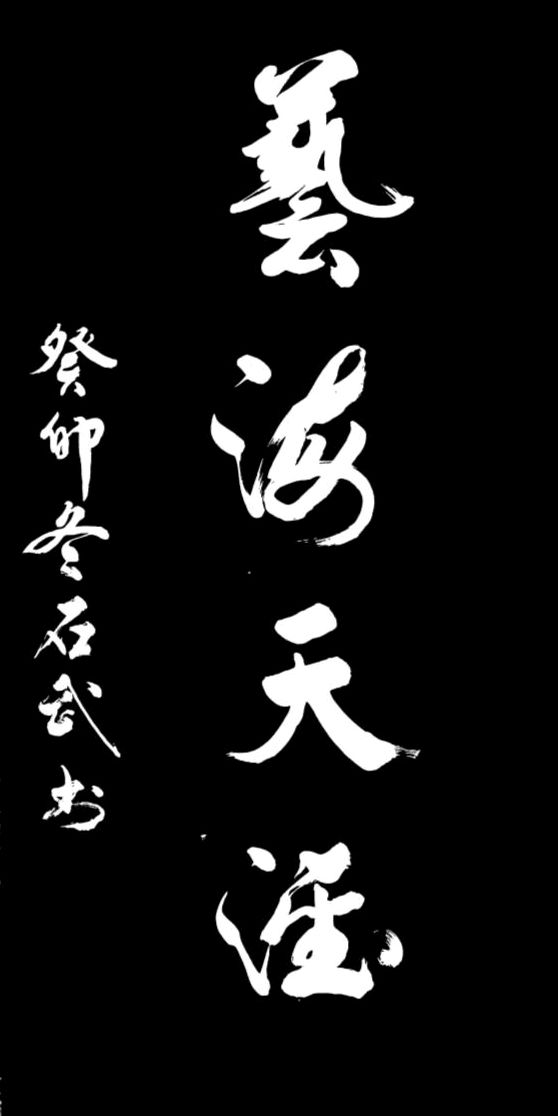 藝海天涯
癸卯冬石武书